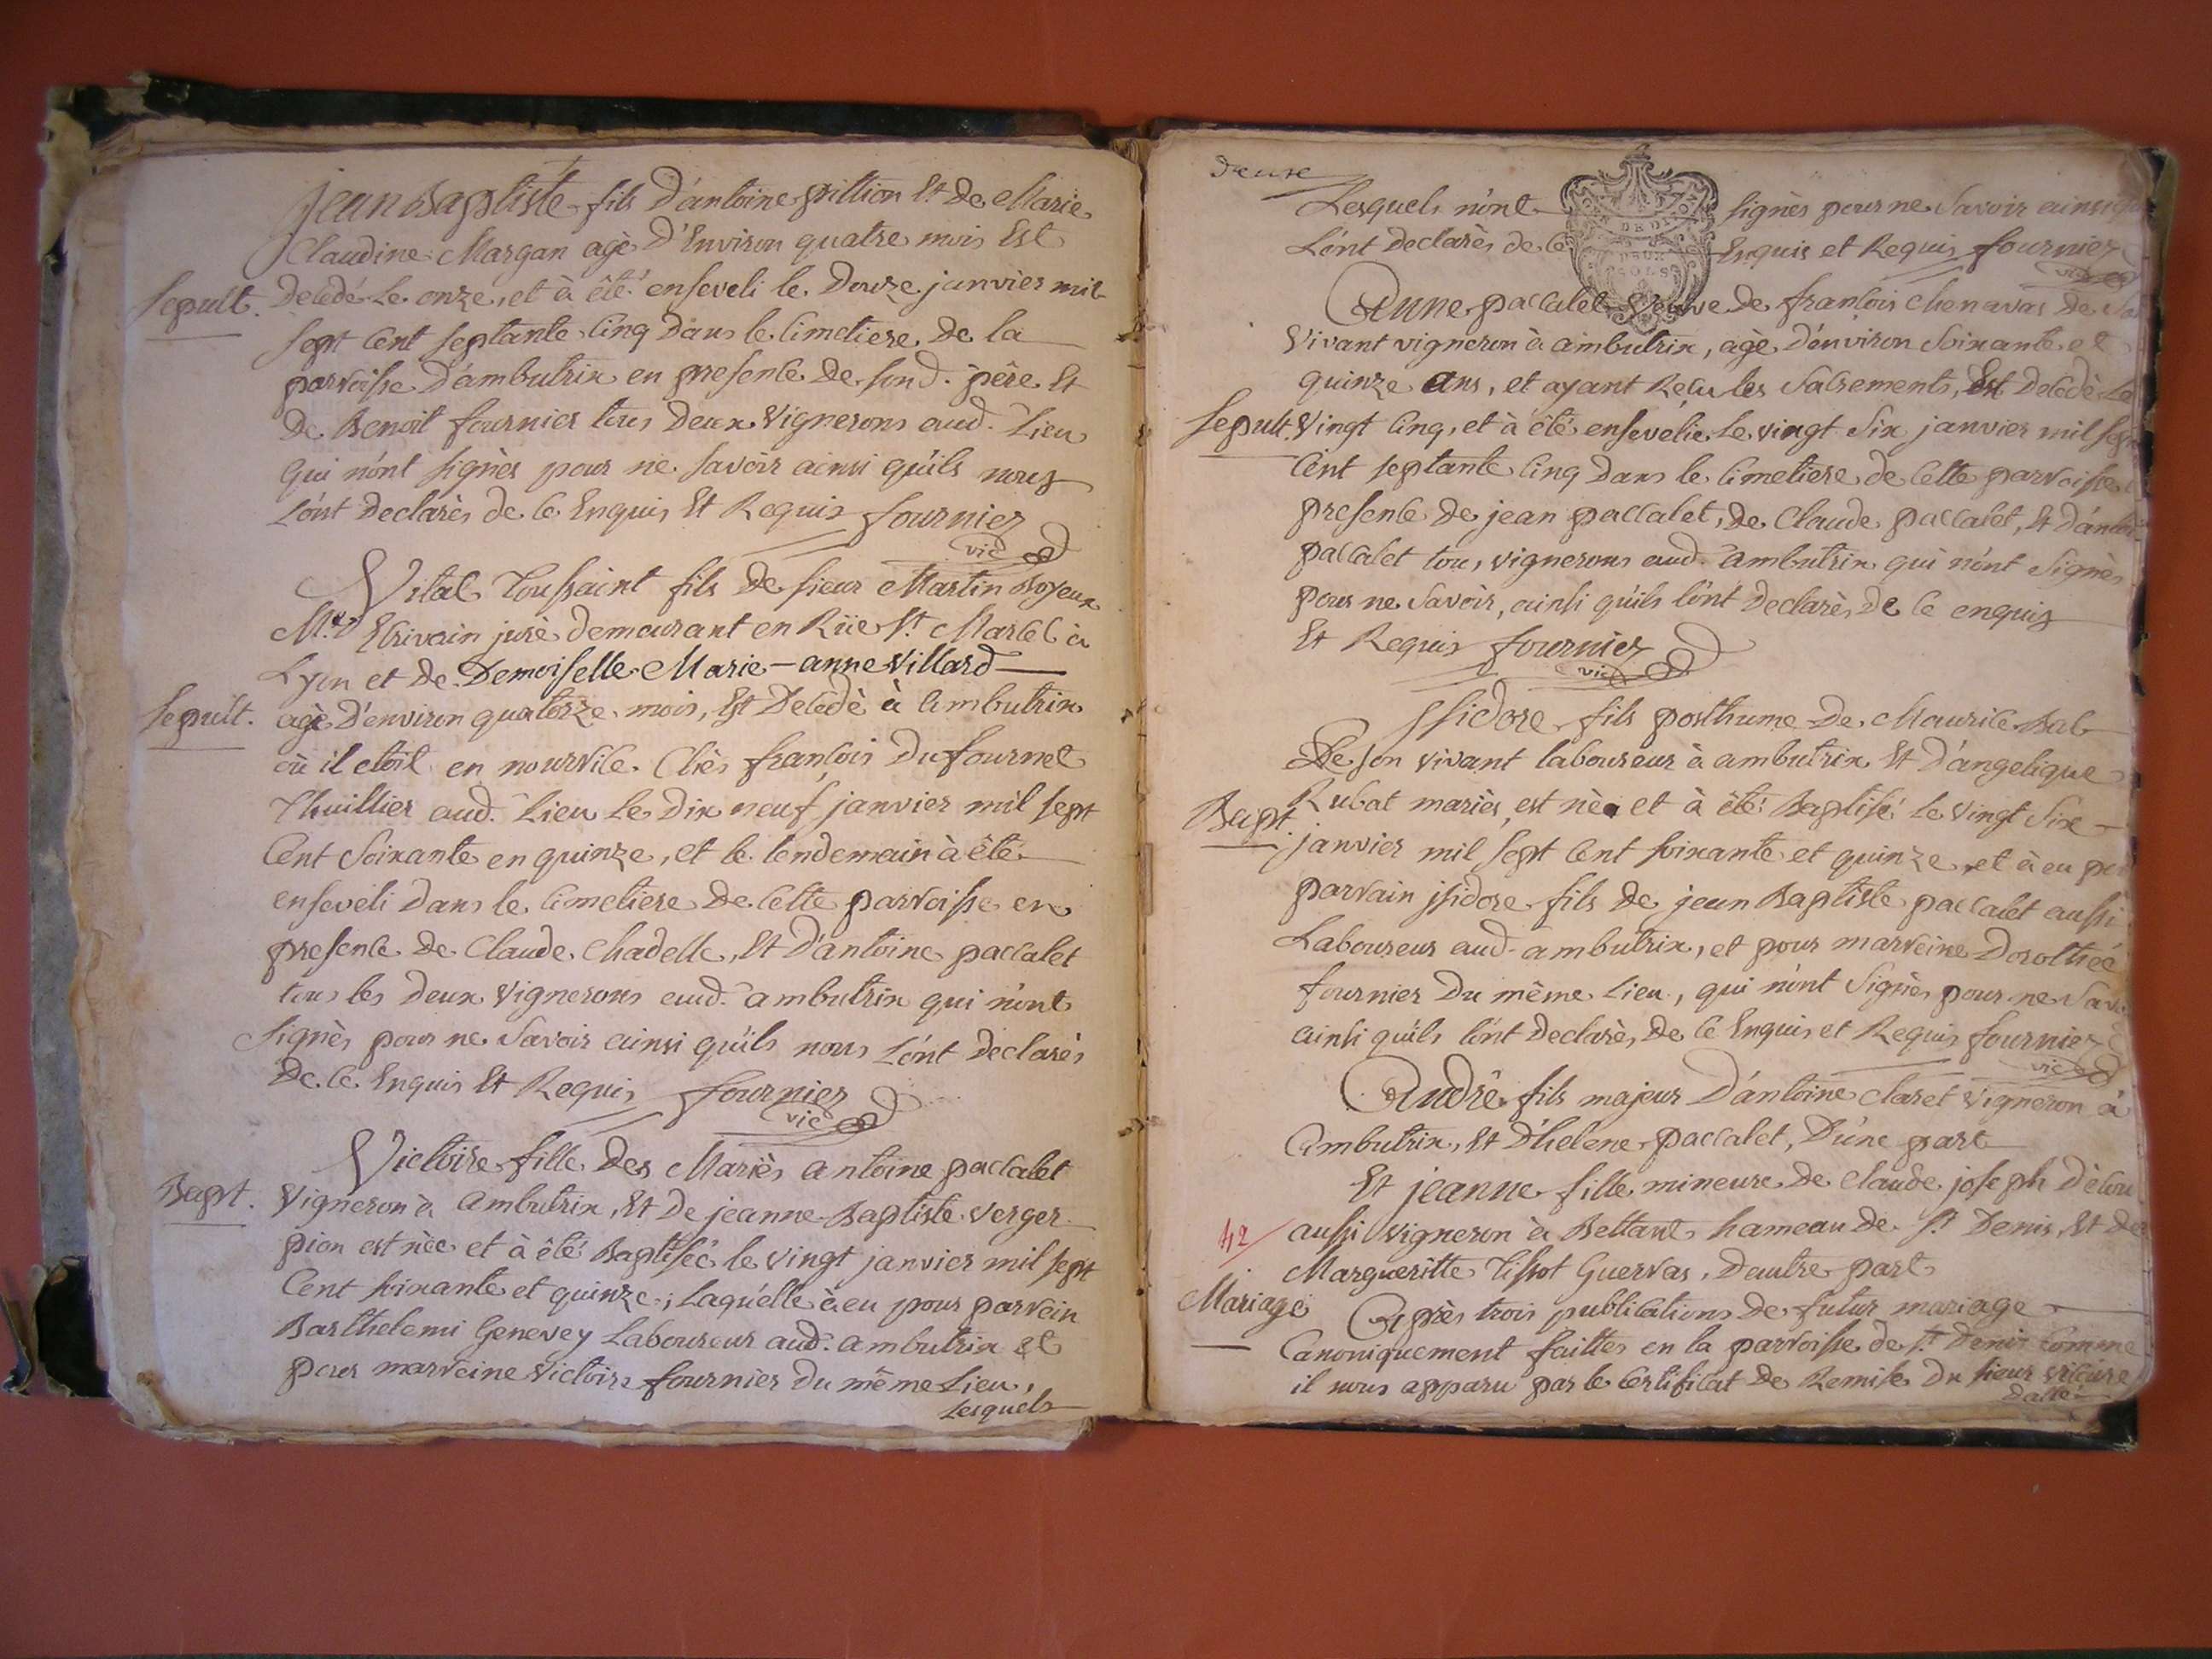 Jean Baptiste fils D'antoine pittion Et De Marie
Claudine Margan agé D'Environ quatre mois Est
Sepult. Decedé Le onze, et à été enseveli le Douze janvier mil
sept Cent septante Cinq Dans le Cimetiere De la
parroisse D'ambutrix en presence De son d. pére Et
De Benoit fournier tous Deux Vignerons aud. Lieu
qui n'ont signès pour ne savoir ainsi qu'ils nous
L'ont Declarès de Ce Enquis Et Requis fournier
vic
Vital Toussaint fils De sieur Martin Boyeux
Mtre Ecrivain juré demeurant en Rüe St. Marcel à
Lyon et de Demoiselle Marie-anne Villard
Sepult. agé D'environ quatorze mois, Est Decedé à Ambutrix
où il etoit en nourrice Chès françois Dufournet
Thuillier aud. Lieu Le Dix neuf janvier mil sept
Cent Soixante en quinze, et le lendemain à été
enseveli Dans le Cimetiere De Cette parroisse en
presence De Claude Chadelle, Et D'antoine paccalet
tous les Deux Vignerons aud. ambutrix qui n'ont
Signès pour ne Savoir ainsi qu'ils nous L'ont declarès
De Ce Enquis Et Requis fournier
vic
Victoire fille Des Mariès antoine paccalet
Bapt. Vigneron à Ambutrix, Et De jeanne Baptiste Verger
pion est nèe et à été Baptisée le vingt janvier mil sept
Cent soixante et quinze; Laquelle à eu pour parrein
Barthelemi Genevey Laboureur aud. ambutrix et
pour marreine Victoire fournier Du même Lieu,
Lesquels
deuxe
Lesquels n'ont signès pour ne Savoir ainsi
L'ont Declarès de Ce Enquis et Requis fournier
vic
Anne paccalet Veuve De françois Chenavas De
Vivant vigneron à ambutrix, agè D'environ Soixante et
quinze Ans, et ayant Reçu les Sacrements, Est Decedè Le
Sepult. Vingt Cinq, et à été ensevelie Le vingt Six janvier mil sept
Cent septante Cinq Dans le Cimetiere de Cette parroisse
presence De jean paccalet, De Claude paccalet, Et D'antoi
paccalet tous vignerons aud. Ambutrix qui n'ont Signès
pour ne Savoir, ainsi qu'ils l'ont Declarès, De Ce enquis
Et Requis fournier
vic
Isidore fils posthume De Maurice Bal
De son vivant laboureur à ambutrix Et D'angelique
Rubat mariès, est nè et à été Baptisé Le Vingt Six
Bapt. janvier mil sept Cent soixante et quinze et à eu
parrain isidore fils De jean Baptiste paccalet aussi
Laboureur aud. ambutrix, et pour marreine Dorothée
fournier Du même Lieu, qui n'ont Signès pour ne Sav
ainsi qu'ils l'ont Declarès, De Ce Enquis et Requis fournier
vic
André fils majeur D'antoine Claret Vigneron à
Ambutrix, Et D'helene paccalet, D'une part
Et jeanne fille mineure De Claude joseph
42 aussi Vigneron à Bettant hameau De St. Denis, Et De
Margueritte Tissot Guerraz, D'autre part
Mariage Après trois publications De futur mariage
Canoniquement faittes en la parroisse de St. Denis Comme
il nous apparu par le Certificat De Remise Du sieur vicaire